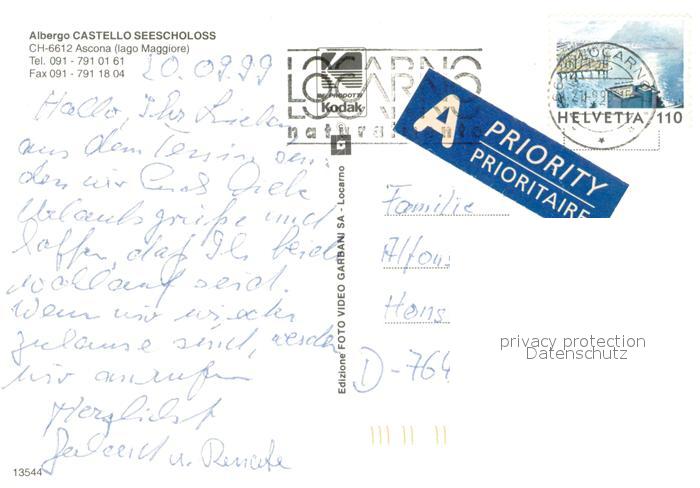 Albergo CASTELLO SEESCHOLOSS
CH-6612 Ascona (lago Maggiore)
Tel. 091 - 791 01 61
Fax 091 - 791 18 04
20.09.99
Hallo, Ihr Lieben
aus dem Tessin sen-
den wir Euch
Urlaubsgrüße und
hoffen, daß Ihr beide
wohlauf seid.
Wenn wir wieder
zuhause sind, werden
wir anrufen
Herzlichst
u. Renate
13544
LOCARNO
LOCARNO
LOCARNO
naturalmente
PRODOTTI
Kodak
Edizione FOTO VIDEO GARBANI SA - Locarno
LOCARNO
HELVETIA 110
A PRIORITY
PRIORITAIRE
Familie
Alfons
Hans
D-764
privacy protection
Datenschutz